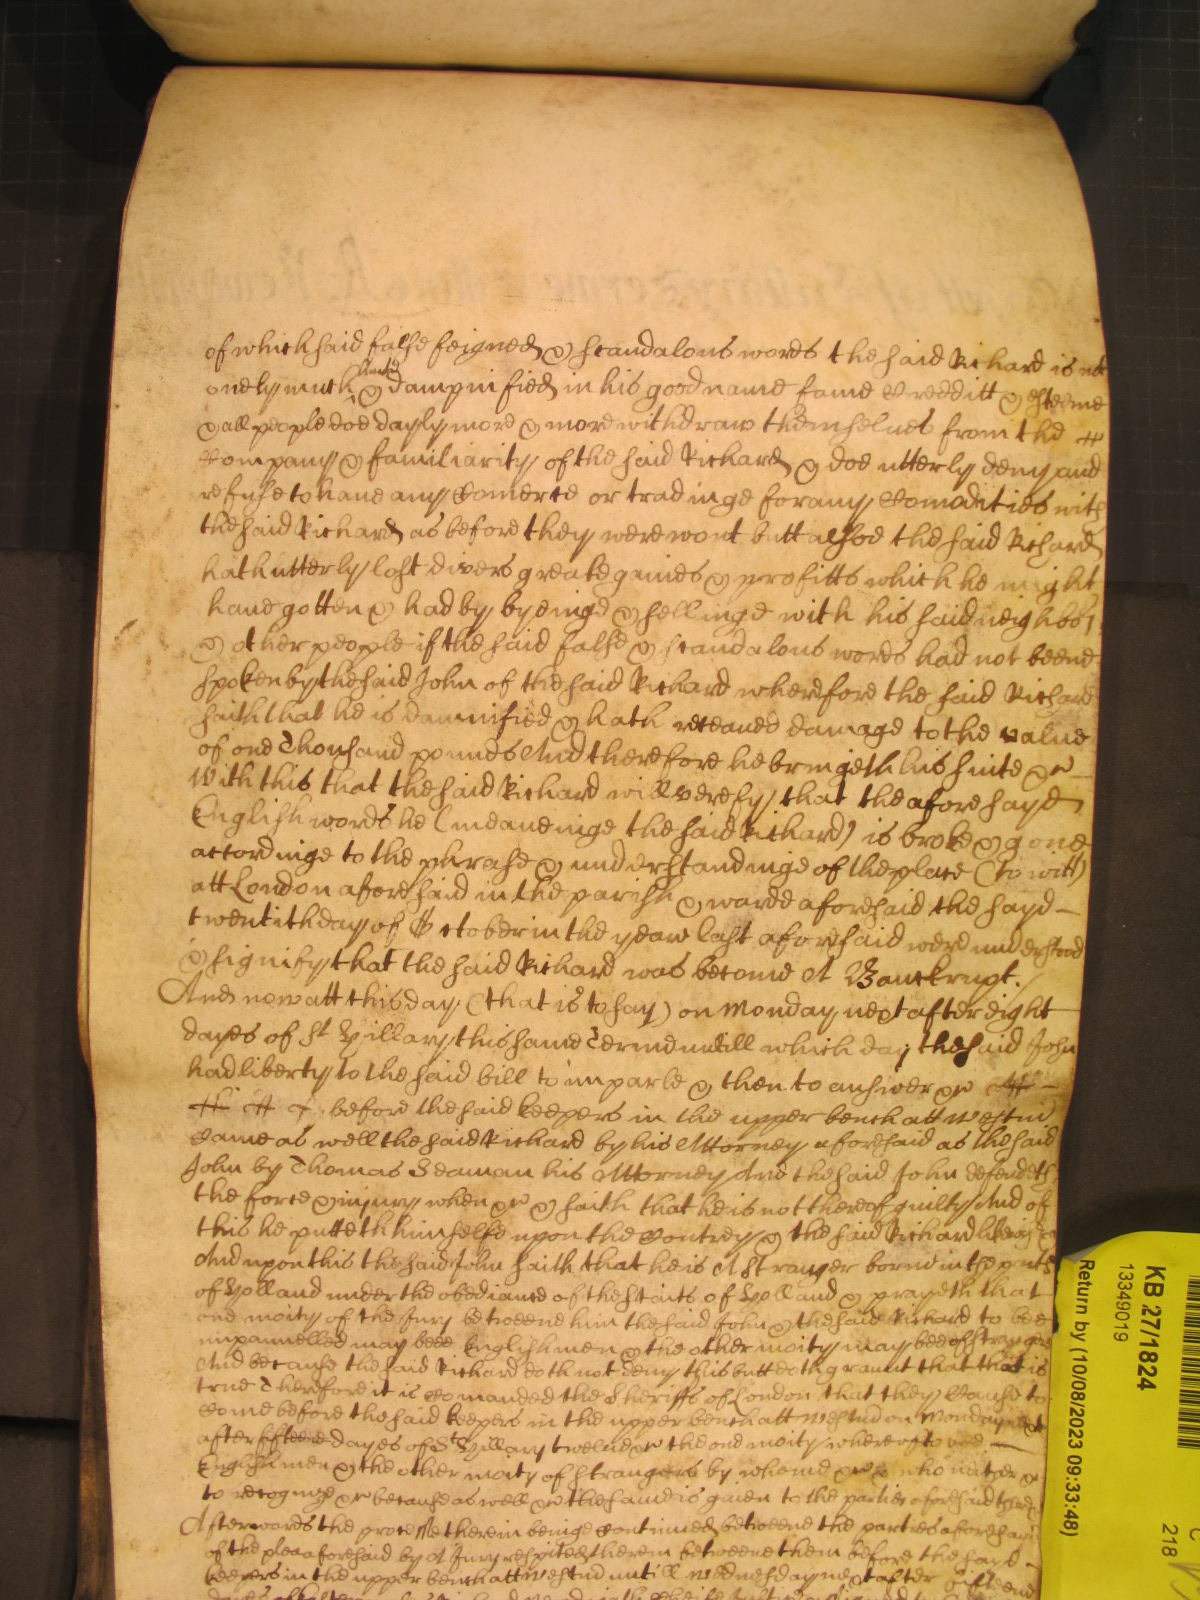 of which said false feigned & scandalous words the said Richard is not
onely much hurt & dampnified in his good name fame Creditt & esteeme
& all people doe dayly more & more withdraw themselves from the
Company & familiarity of the said Richard & doe utterly deny and
refuse to have any Comerce or tradinge for any Comodities with
the said Richard as before they were wont butt alsoe the said Richard
hath utterly lost divers greate gaines & profitts which he might
have gotten & had by byeinge & sellinge with his said neighbo
& other people if the said false & scandalous words had not beene
spoken by the said John of the said Richard wherefore the said Richard
saith that he is damnified & hath receaved damage to the value
of one Thousand pounds And therefore he bringeth his suite &c
With this that the said Richard will verefy that the aforesayd
English words he (meaneinge the said Richard) is broke & gone
accordinge to the phrase & understandinge of the place (to witt)
att London aforesaid in the parish & warde aforesaid the sayd
twentith day of October in the yeare last aforesaid were understood
& signify that the said Richard was become A Banckrupt.
And now att this day (that is to say) on Monday next after eight
dayes of St Hillary this same Terme untill which day the said John
had liberty to the said bill to imparle & then to answer &c
before the said keepers in the upper bench att Westm
Came as well the said Richard by his Attorney aforesaid as the said
John by Thomas Seaman his Attorney And the said John defendeth
the force & injury when &c & saith that he is not thereof guilty And of
this he putteth himselfe upon the Contrey & the said Richard likewise
And upon this the said John saith that he is A Stranger borne in the parts
of Holland under the obediance of the staits of Holland & prayeth that
one moity of the Jury betweene him the said John & the said Richard to bee
impannelled may beee Englishmen & the other moity may bee of strangers
And because the said Richard doth not deny this butt doth graunt that that is
true Therefore it is Comanded the Sheriffs of London that they Cause to
Come before the said keepers in the upper bench att Westm on Monday next
after fifteene dayes of St Hillary twelve &c the one moity whereof to bee
Englishmen & the other moity of strangers by whome &c & who neither &c
to recognize &c because as well &c the same is given to the parties aforesaid there
Afterwards the processe therein beinge Continued betweene the parties aforesayd
of the plea aforesaid by A Jury respited therein betweene them before the sayd
keepers in the upper bench att Westm untill Wednesday next after fifteene
KB 27/1824
13349019
Return by (10/08/2023 09:33:48)
218